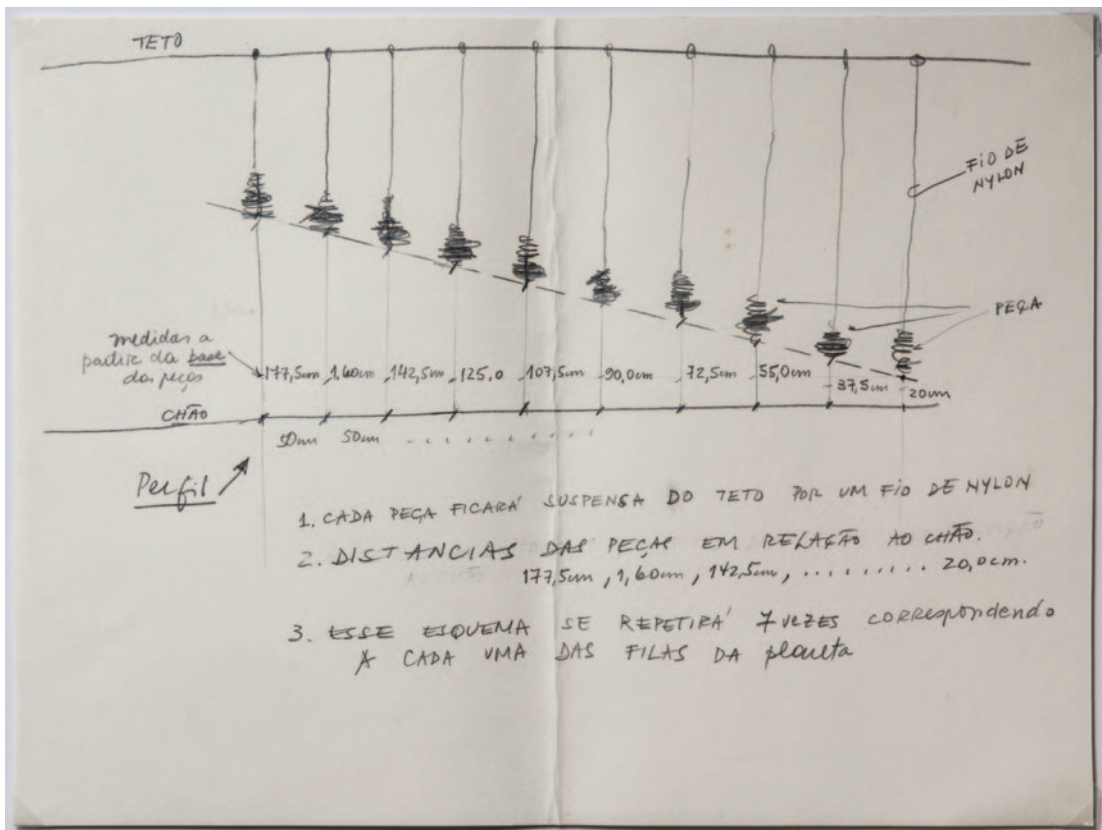 TETO
FIO DE
NYLON
PEÇA
medidas a
partir da base
das peças
177,5cm 1,60cm 142,5cm 125,0 107,5cm 90,0cm 72,5cm 55,0cm 37,5cm 20cm
CHÃO
50cm 50cm . . . . . . . . . .
Perfil
1. CADA PEÇA FICARÁ SUSPENSA DO TETO POR UM FIO DE NYLON
2. DISTANCIAS DAS PEÇAS EM RELAÇÃO AO CHÃO.
177,5cm, 1,60cm, 142,5cm, . . . . . . . . . 20,0cm.
3. ESSE ESQUEMA SE REPETIRÁ 7 VEZES CORRESPONDENDO
A CADA UMA DAS FILAS DA planta